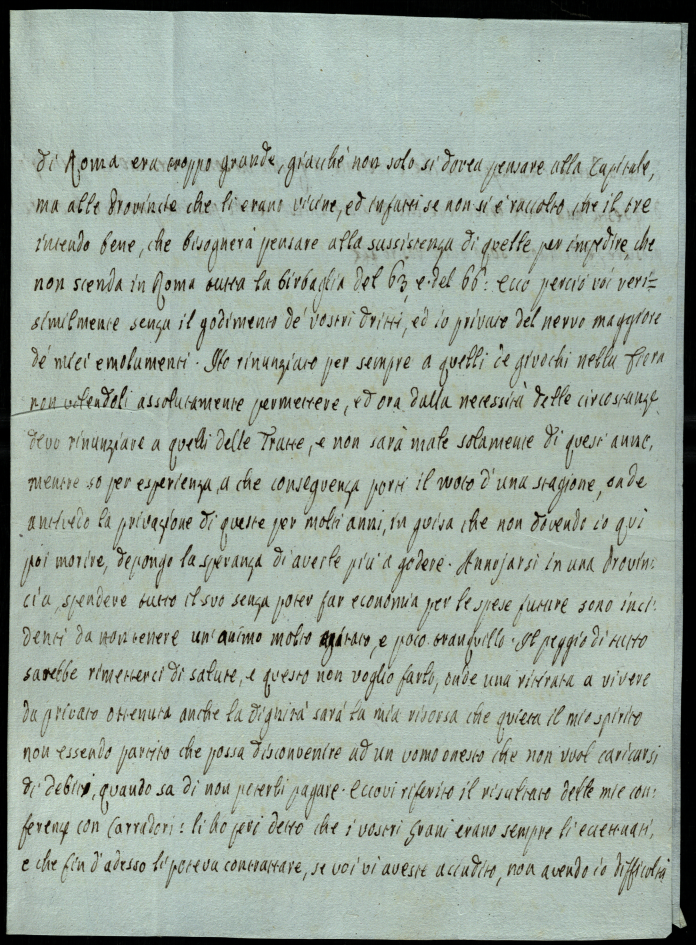 di Roma era troppo grande, giacché non solo si dovea pensare alla Capitale,
ma alle Provincie che li erano vicine, ed infatti se non si è raccolto che il tre
intendo bene, che bisognerà pensare alla sussistenza di quelle per impedire, che
non scenda in Roma tutta la birbaglia del 63, e del 66: ecco perciò voi veri=
similmente senza il godimento de' vostri dritti, ed io privato del nervo maggiore
de' miei emolumenti. Ho rinunziato per sempre a quelli de' giuochi nella fiera
non volendoli assolutamente permettere, ed ora dalla necessità delle circostanze
devo rinunziare a quelli delle Tratte, e non sarà male solamente di quest'anno,
mentre so per esperienza, a che conseguenza porti il vuoto d'una stagione, onde
antivedo la privazione di queste per molti anni, in guisa che non dovendo io qui
poi morire, depongo la speranza di averle più a godere. Annojarsi in una Provin:
cia, spendere tutto il suo senza poter far economia per le spese future sono inci:
denti da non tenere un'animo molto agitato, e poco tranquillo. Il peggio di tutto
sarebbe rimetterci di salute, e questo non voglio farlo, onde una ritirata a vivere
da privato ottenuta anche la dignità sarà la mia risorsa che quieta il mio spirito
non essendo partito che possa disconvenire ad un uomo onesto che non vuol caricarsi
di debiti, quando sa di non poterli pagare. Eccovi riferito il risultato delle mie con:
ferenze con Corradori: li ho jeri detto che i vostri Grani erano sempre li eccettuati,
e che fin d'adesso li poteva contrattare, se voi vi aveste accudito, non avendo io difficoltà